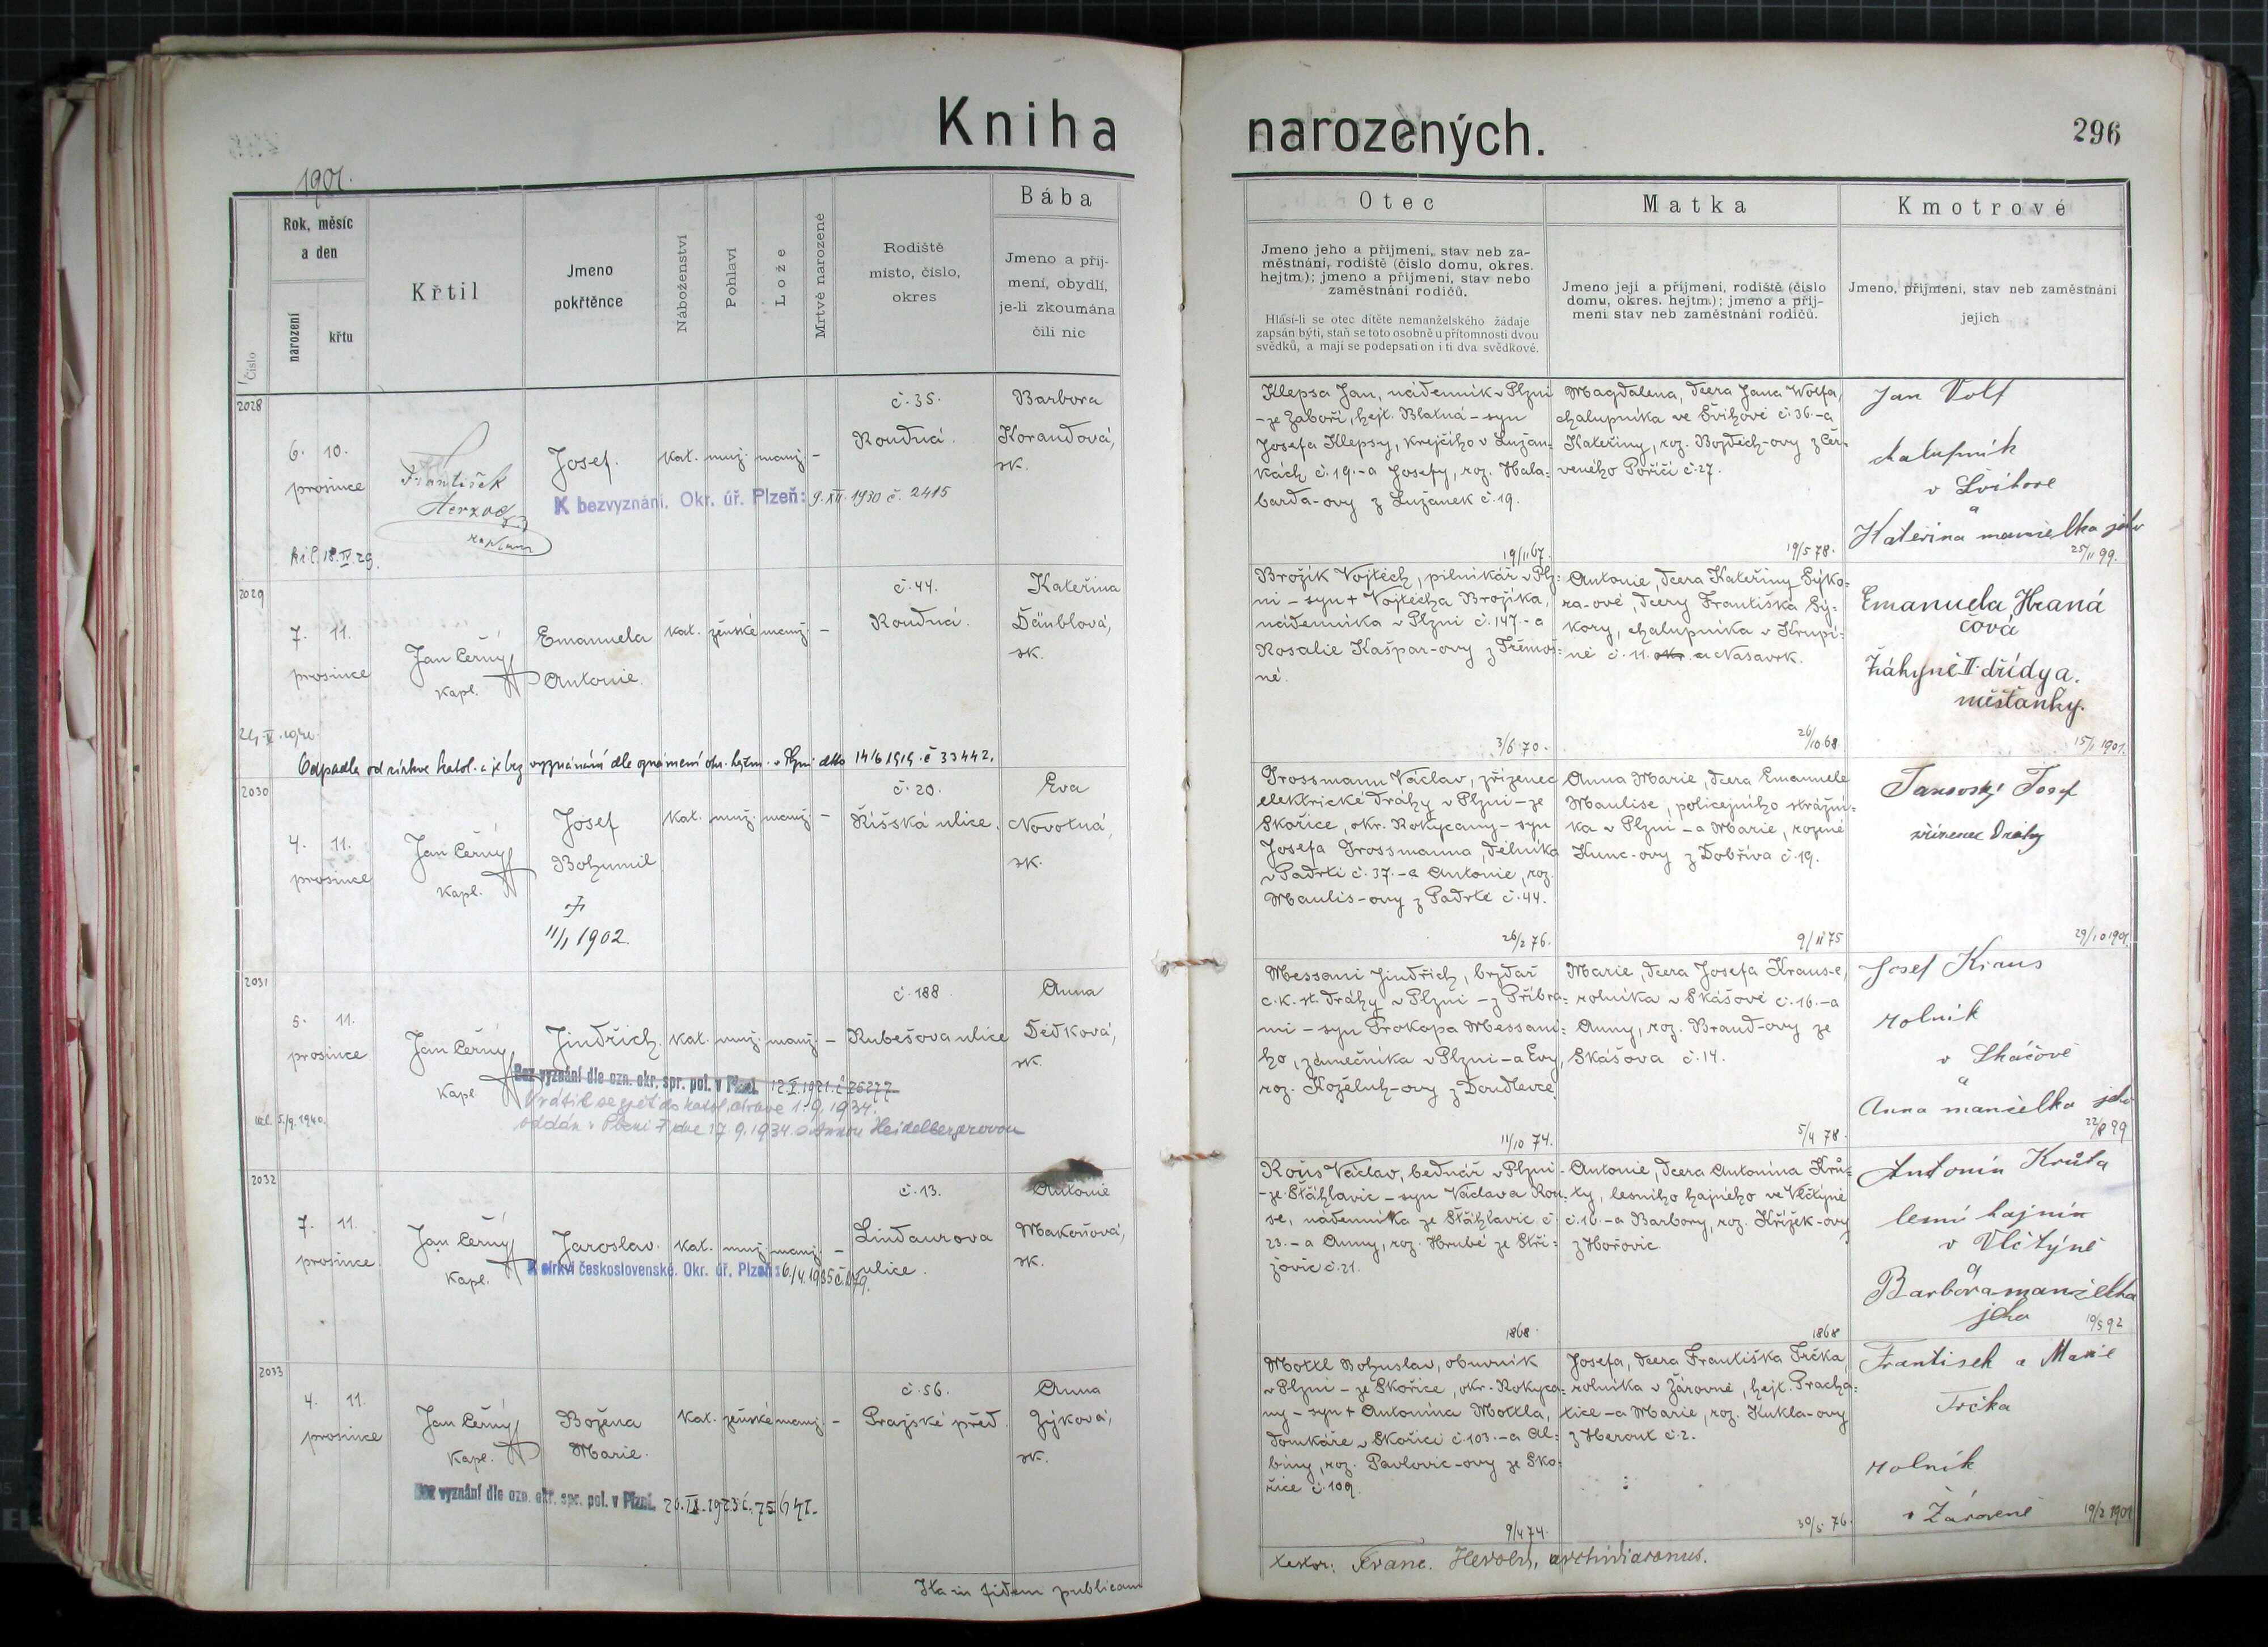 Kniha narozených.
296
1901.
Číslo
Rok, měsíc
a den
narození
křtu
Křtil
Jmeno
pokřtěnce
Náboženství
Pohlaví
Lože
Mrtvě narozené
Rodiště
místo, číslo,
okres
Bába
Jmeno a příj-
mení, obydlí,
je-li zkoumána
čili nic
Otec
Jmeno jeho a příjmeni, stav neb za-
městnání, rodiště (číslo domu, okres.
hejtm.); jmeno a příjmení, stav nebo
zaměstnání rodičů.
Hlásí-li se otec dítěte nemanželského žádaje
zapsán býti, staň se toto osobně u přítomnosti dvou
svědků, a mají se podepsati on i ti dva svědkové.
Matka
Jmeno její a příjmeni, rodiště (číslo
domu, okres. hejtm.); jmeno a příj-
meni stav neb zaměstnání rodičů.
Kmotrové
Jmeno, příjmeni, stav neb zaměstnání
jejich
2028
6. 10.
prosince
František
Herzog
Josef.
kat. muž. manž. -
č. 35.
Roudná.
Barbora
Korandová,
zk.
K bezvyznání. Okr. úř. Plzeň: 9. XII. 1930 č. 2415
18. IV. 29.
Klepsa Jan, nádenník v Plzni
- ze Záboří, hejt. Blatná - syn
Josefa Klepsy, krejčího v Lužan-
kách č. 19. - a Josefy, roz. Hala-
barda-ovy z Lužánek č. 19.
19/11 67.
Magdalena, dcera Jana Wolfa,
chalupníka ve Švihově č. 36. - a
Kateřiny, roz. Bojdech-ovy z Čer-
veného Poříčí č. 27.
19/5 78.
Jan Volf
chalupník
v Švihove
a
Kateřina manzelka jeho
25/11 99.
2029
7. 11.
prosince
Jan Černý
kapl.
Emanuela
Antonie.
kat. ženské manž. -
č. 44.
Roudná.
Kateřina
Däublová,
zk.
Odpadla od církve katol. a je bez vyznání dle oznámení okr. hejtm. v Plzni dtto 14/6 1919. č 33442.
Brožík Vojtěch, pilníkář v Plz-
ni - syn + Vojtěcha Brožíka,
nádenníka v Plzni č. 147. - a
Rosalie Kašpar-ovy z Třemoš-
né.
3/6 70.
Antonie, dcera Kateřiny Sýko-
ra-ové, dcery Františka Sý-
kory, chalupníka v Krupi-
né č. 11. okr. a Nasavrk.
26/10 68
Emanuela Hraná
cová
Žákyně II. třídy a.
měšťanky.
15/1 1901.
2030
4. 11.
prosince
Jan Černý
kapl.
Josef
Bohumil
+
11/1 1902.
kat. muž. manž. -
č. 20.
Říšská ulice.
Eva
Novotná,
zk.
Grossmann Václav, zřízenec
elektrické dráhy v Plzni - ze
Skořice, okr. Rokycany - syn
Josefa Grossmanna, dělníka
v Padrti č. 37. - a Antonie, roz.
Maulis-ovy z Padrtě č. 44.
26/2 76.
Anna Marie, dcera Emanuele
Maulise, policejního strážní-
ka v Plzni - a Marie, rozené
Kunc-ovy z Dobříva č. 19.
9/11 75
Josef
zřízenec dráhy
29/10 1901.
2031
5. 11.
prosince
Jan Černý
kapl.
Jindřich.
kat. muž. manž. -
č. 188.
Rubešova ulice
Anna
Dědková,
zk.
Bez vyznání dle ozn. okr. spr. pol. v Plzni. 12. X. 1921. č 26277
Vrátil se zpět do katol. církve 1. 9. 1934.
oddán v Plzni dne 17. 9. 1934. s Annou Heidelbergerovou
5/9. 1940.
Messani Jindřich, brzdař
c. k. st. dráhy v Plzni - z Příbra-
mi - syn Prokopa Messani-
ho, zámečníka v Plzni - a Evy,
roz. Koželuh-ovy z Doudlevec
11/10 74.
Marie, dcera Josefa Kraus-e,
rolníka v Skášově č. 16. - a
Anny, roz. Brand-ovy ze
Skášova č. 14.
5/4 78.
Josef Kraus
rolník
v Skášově
a
Anna manželka jeho
22/8 99
2032
7. 11.
prosince
Jan Černý
kapl.
Jaroslav.
kat. muž. manž. -
č. 13.
Lindaurova
ulice.
Antonie
Makoňová,
zk.
K církvi československé. Okr. úř. Plzeň: 6./4. 1935
Rous Václav, bednář v Plzni
- ze Šťáhlavic - syn Václava Rou-
se, nádenníka ze Šťáhlavic č.
23. - a Anny, roz. Hrubé ze Stří-
žovic č. 21.
1868.
Antonie, dcera Antonína Krů-
ty, lesního hajného ve Vlčtýně
č. 16. - a Barbory, roz. Křížek-ovy
z Hořovic.
1868
Antonín Krůta
lesní hajný
v Vlčtýně
a
Barbora manzelka
jeho
10/5 92
2033
4. 11.
prosince
Jan Černý
kapl.
Božena
Marie.
kat. ženské manž. -
č. 56.
Pražské před.
Anna
Zýková,
zk.
Bez vyznání dle ozn. okr. spr. pol. v Plzni.
Mottl Bohuslav, obuvník
v Plzni - ze Skořice, okr. Rokyca-
ny - syn + Antonína Mottla,
domkáře v Skořici č. 103. - a Al-
biny, roz. Pavlovic-ovy ze Sko-
řice č. 109.
9/4 74.
Josefa, dcera Františka Trčka,
rolníka v Žárovné, hejt. Pracha-
tice - a Marie, roz. Kukla-ovy
z Herout č. 2.
30/5 76.
František a Marie
Trčka
rolník
v Žárovné
19/2 1901
Ita in fidem publicam
testor: Franc. Herold, archidiaconus.